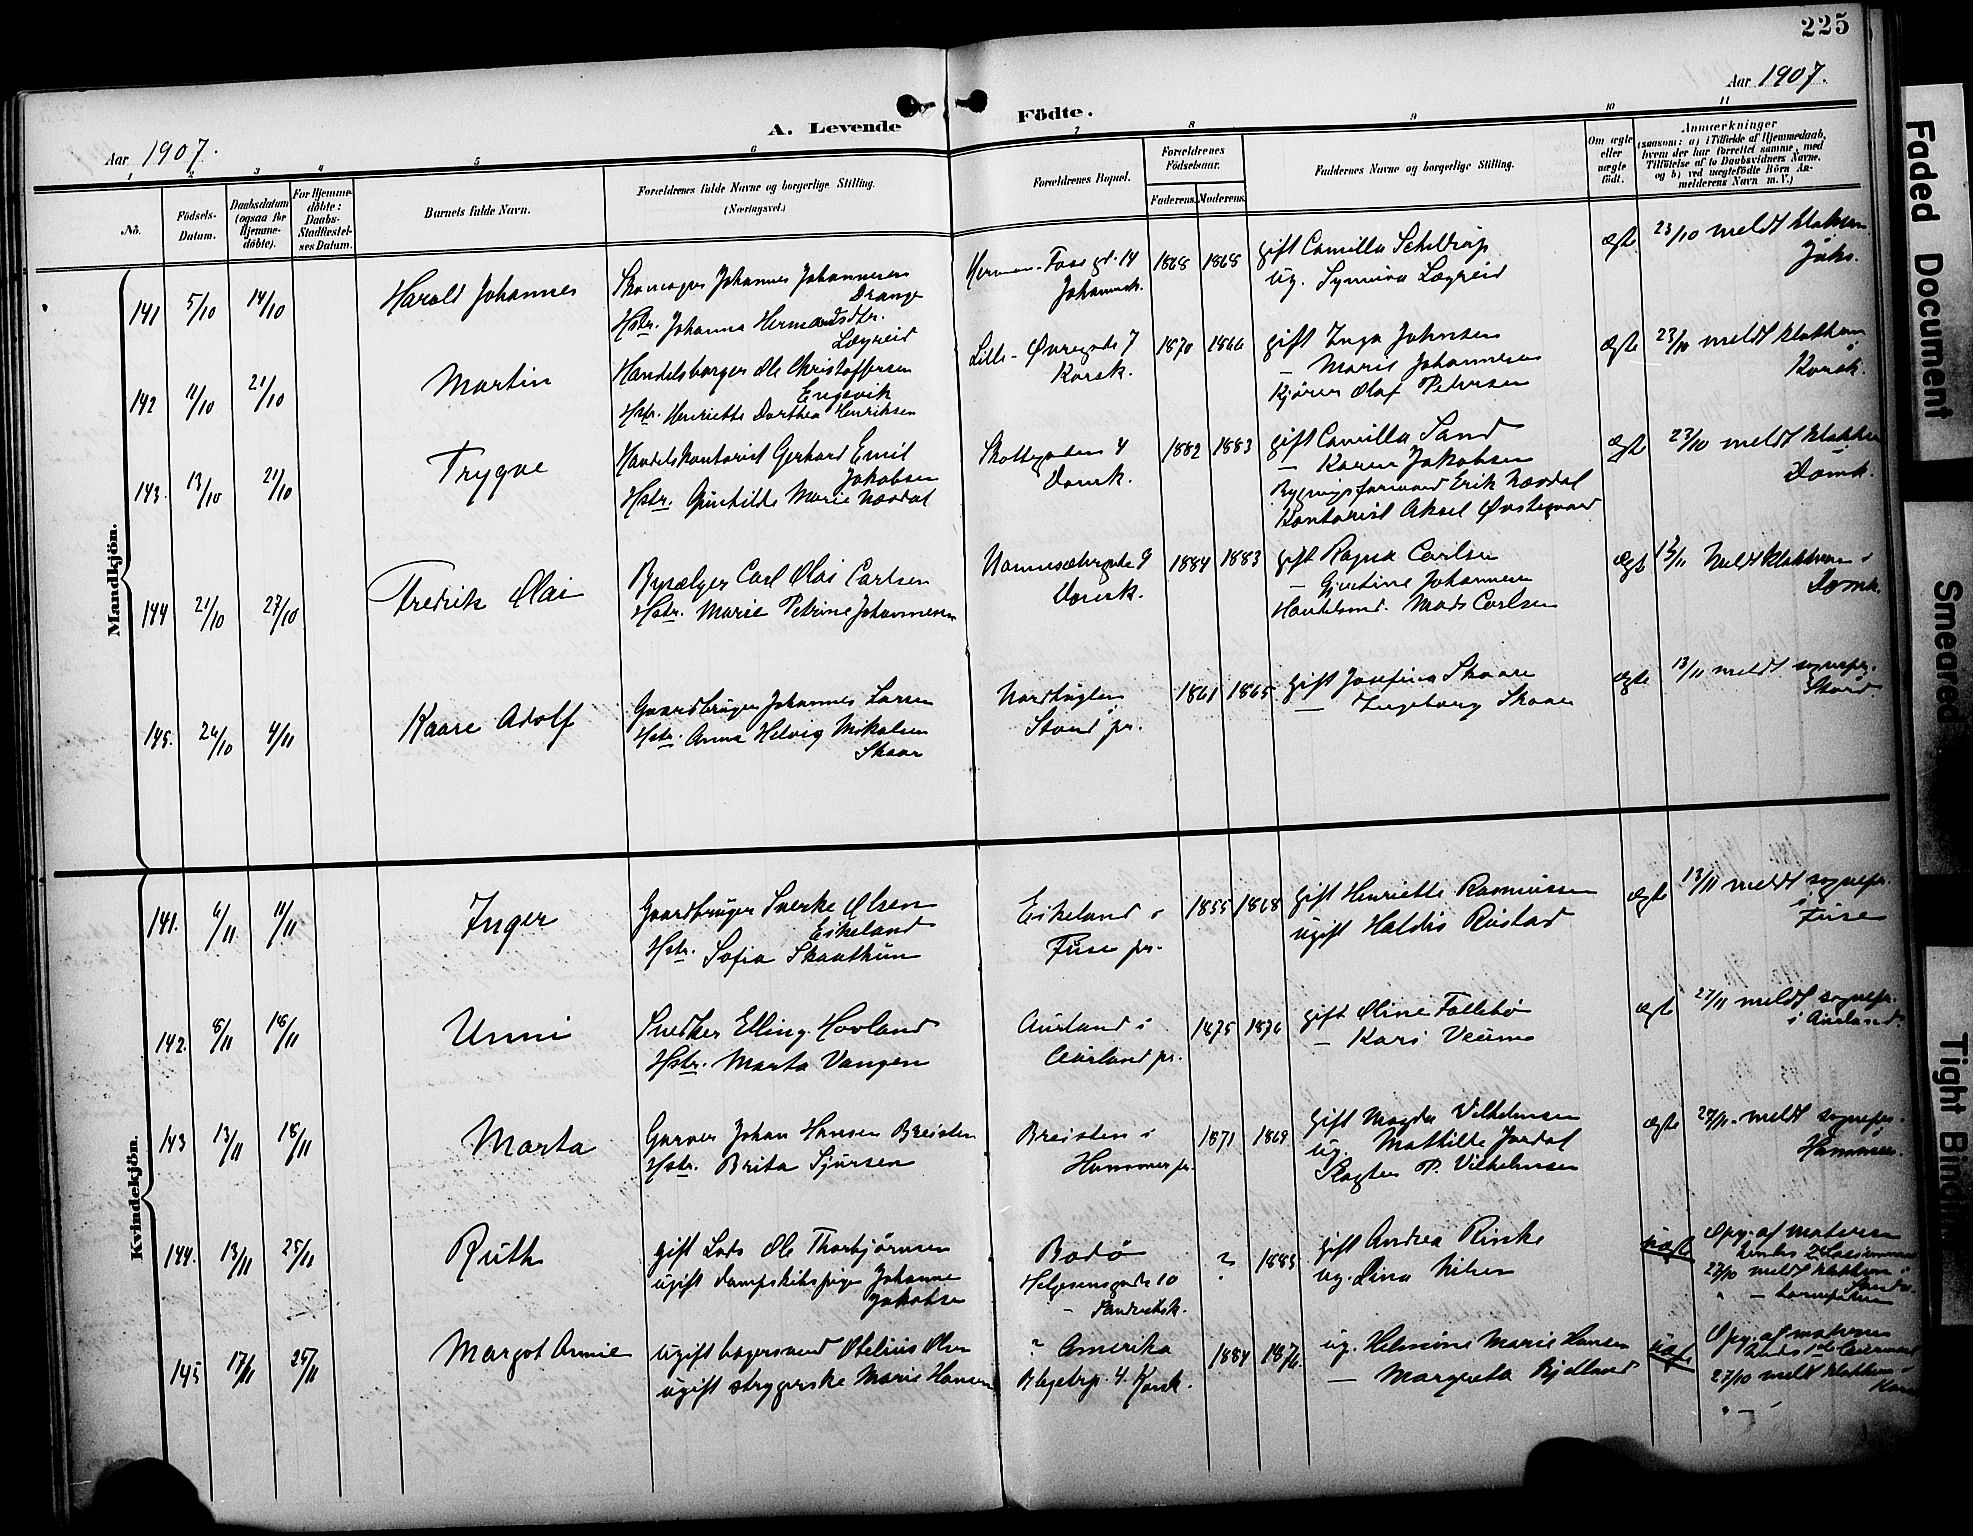 225
Aar 1907.
Aar 1907.
A. Levende Födte.
1 2 3 4 5 6 7 8 9 10 11
No.
Födsels-
Datum.
Daabsdatum
(ogsaa for
Hjemme-
döbte).
For Hjemme-
döbte:
Daabs-
Stadfæstel-
ses Datum.
Barnets fulde Navn.
Forældrenes fulde Navne og borgerlige Stilling.
(Næringsvei.)
Forældrenes Bopæl.
Forældrenes
Födselsaar.
Faderens. Moderens.
Faddernes Navne og borgerlige Stilling.
Om ægte
eller
uægte
födt.
Anmærkninger
(saasom: a) i Tilfælde af Hjemmedaab,
hvem der har forrettet samme, med
Tilföielse af to Daabsvidners Navne,
og b) ved uægtefödte Börn An-
melderens Navn m. V.)
Mandkjön.
141 5/10 14/10
Harald Johannes
Johannes Johannesen
Drange
Hstr. Johanna Hermandsdtr.
Lægreid
14
1868 1868
gift Camilla Schiltrop
ug. Synnöva Lægreid
ægte
23/10 meldt klokken
Johs.
142 11/10 21/10
Martin
Handelsborger Ole Christoffersen
Engevik
Hstr. Henriette Dorthea Henriksen
Lille-Øvregade 7
Korsk.
1870 1866
gift Inga Johnsen
— Maris Johannesen
Olaf Petersen
ægte
23/10 meldt klokken
i Korsk.
143. 13/10 21/10
Trygve
Handelskontorist Gerhard Emil
Jakobsen
Hstr. Gunhilde Marie Nævdal
Skottegaten 4
Domk.
1882 1883
gift Camilla Sand
— Karen Jakobsen
Bygningsformand Erik Nævdal
Kontorist Aksel Øvstegaard
ægte
23/10 meldt klokken
Domk.
144 21/10 27/10
Fredrik Olai
Carl Olai Carlsen
Hstr. Marie Petrine Johannesen
9
Domk.
1884 1883
gift Ragna Carlsen
— Gjertine Johannesen
Handelsmd. Mads Carlsen
ægte
13/11 Meldt klokkeren i
Domk.
145. 26/10 4/11
Kaare Adolf
Gaardbruger Johannes Larsen
Hstr. Anna Helvig Mikalsen
Skaar
Nordhuglen
Stord pr.
1861 1865
gift Josefina Skaare
— Ingeborg Skaar
ægte
13/11 meldt sognepr.
Stord
Kvindekjön.
141. 6/11 11/11
Inger
Gaardbruger Sverke Olsen
Eikeland
Hstr. Sofia Skaathun
Eikeland i
Fuse pr.
1855 1868
gift Henriette Rasmussen
ugift Haldis Rustad
ægte
13/11 meldt sognepr.
i Fuse
142. 8/11 18/11
Unni
Snedker Elling Hovland
Hstr. Marta Vangen
Aurland i
Aurland pr.
1875 1876
gift Oline Fallebø
— Kari Veum
ægte
27/11 meldt sognepr.
i Aurland
143 13/11 18/11
Marta
Garver Johan Hansen Breisten
Hstr. Brita Sjursen
Breisten i
Hammer pr.
1871 1869
gift Magda Vilhelmsen
ug. Mathilde Jordal
Slagter P. Vilhelmsen
ægte
27/11. meldt sognepr.
Hammer.
144. 13/11 25/11
Ruth
gift Lods Ole Thorbjörnsen
ugift dampskibspige Johanne
Jakobsen
Bodø
Helgesensgade 10
Sandviksk.
? 1885
gift Andrea Rinke
ug. Lina Nilsen
uægte
Opg. af moderen
27/10 meldt klokken i
Sandv.
145 17/11 25/11
Margot Annie
ugift bagersvend Otelius Olsen
ugift strygerske Marie Hansen
? Amerika
4. Korsk.
1884 1876.
ug. Helmine Marie Hansen
— Margreta
uægte
Opg. af moderen
27/10 meldt klokken i
Korsk